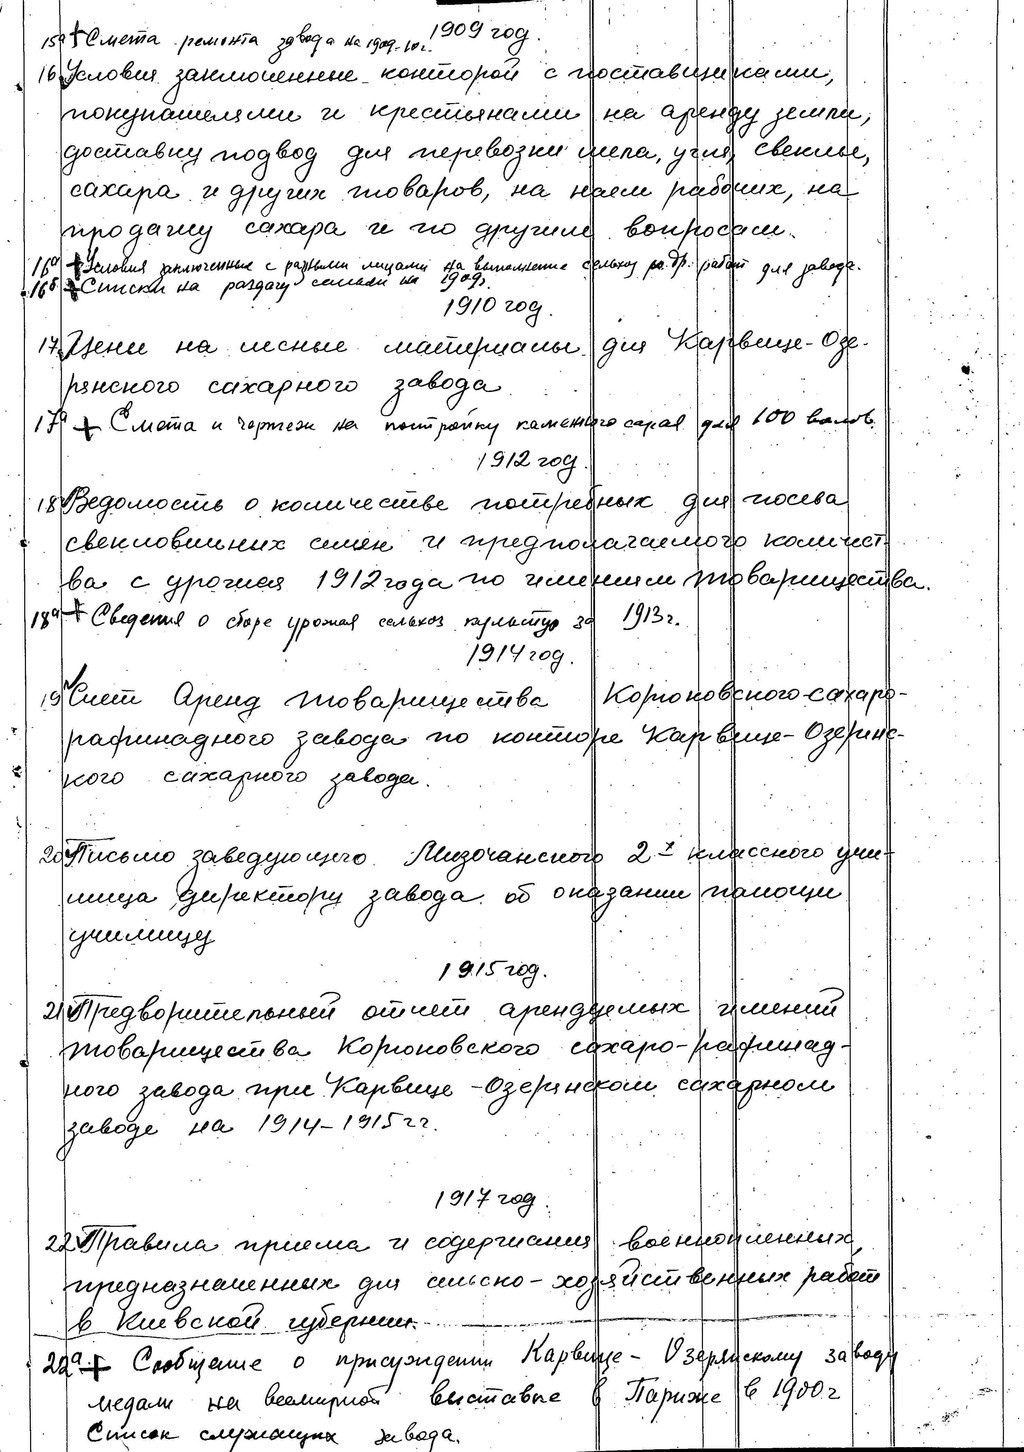 1909 год.
15а + Смета ремонта завода на 1909-10 г.
16 Условия заключенные конторой с поставщиками,
покупателями и крестьянами на аренду земли,
доставку подвод для перевозки мела, угля, свеклы,
сахара и других товаров, на наем рабочих, на
продажу сахара и по другим вопросам.
16а + Условия заключенные с разными лицами на выполнение сельхоз. работ для завода.
16б + Списки на раздачу на 1909г.
1910 год.
17 Цены на лесные материалы для Карвице-Озе-
рянского сахарного завода
17а + Смета и чертеж на постройку каменного сарая для 100 волов.
1912 год.
18 Ведомость о количестве потребных для посева
свекловичных семян и предполагаемого количест-
ва с урожая 1912 года по имениям товарищества.
18а + Сведения о сборе урожая сельхоз культур за 1913 г.
1914 год.
19 Счет Аренд товарищества Корюковского-сахаро-
рафинадного завода по конторе Карвице-Озерянс-
кого сахарного завода.
20 Письмо заведующего Мизочанского 2-х классного учи-
лища директору завода об оказании помощи
училищу
1915 год.
21 Предворительный отчет арендуемых имений
товарищества Корюковского сахаро-рафинад-
ного завода при Карвице-Озерянском сахарном
заводе на 1914-1915 гг.
1917 год.
22 Правила приема и содержания военнопленных,
предназначенных для сельско-хозяйственных работ
в Киевской губернии.
22а + Сообщение о присуждении Карвице-Озерянскому заводу
медали на всемирной выставке в Париже в 1900 г
Список служащих завода.